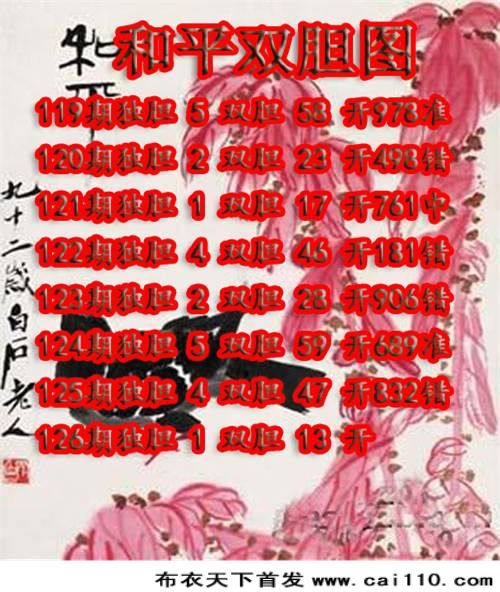 和平双胆图
119期独胆 5 双胆 58 开978准
120期独胆 2 双胆 23 开498错
121期独胆 1 双胆 17 开761中
122期独胆 4 双胆 46 开181错
123期独胆 2 双胆 28 开906错
124期独胆 5 双胆 59 开689准
125期独胆 4 双胆 47 开832错
126期独胆 1 双胆 13 开
九十二岁白石老人
布衣天下首发 www.cai110.com